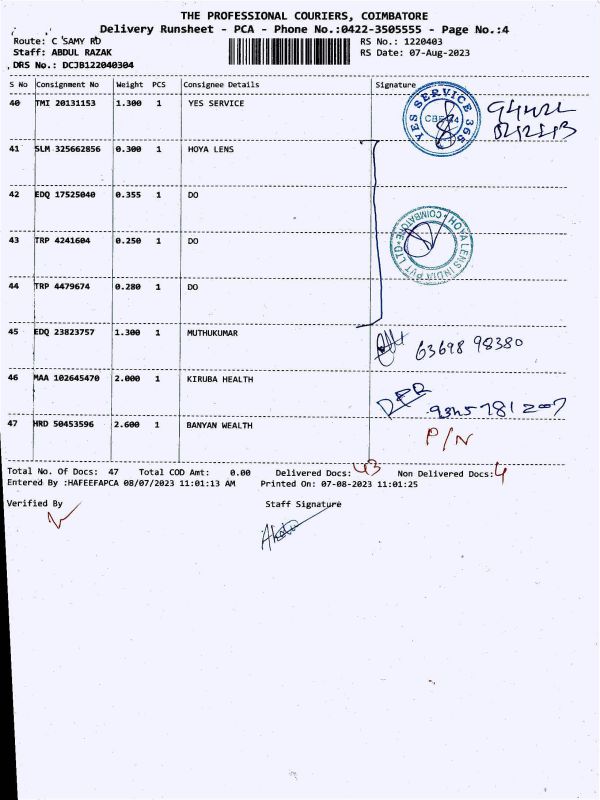 THE PROFESSIONAL COURIERS, COIMBATORE
Delivery Runsheet - PCA - Phone No.:0422-3505555 - Page No.:4
Route: C SAMY RD RS No.: 1220403
Staff: ABDUL RAZAK RS Date: 07-Aug-2023
DRS No.: DCJB122040304
S No Consignment No Weight PCS Consignee Details Signature
40 TMI 20131153 1.300 1 YES SERVICE
YES SERVICE 365
41 SLM 325662856 0.300 1 HOYA LENS
42 EDQ 17525040 0.355 1 DO
43 TRP 4241604 0.250 1 DO
HOYA LENS INDIA PVT LTD COIMBATORE
44 TRP 4479674 0.280 1 DO
45 EDQ 23823757 1.300 1 MUTHUKUMAR
63698 98380
46 MAA 102645470 2.000 1 KIRUBA HEALTH
47 HRD 50453596 2.600 1 BANYAN WEALTH
P/N
Total No. Of Docs: 47 Total COD Amt: 0.00 Delivered Docs: 43 Non Delivered Docs: 4
Entered By :HAFEEFAPCA 08/07/2023 11:01:13 AM Printed On: 07-08-2023 11:01:25
Verified By Staff Signature